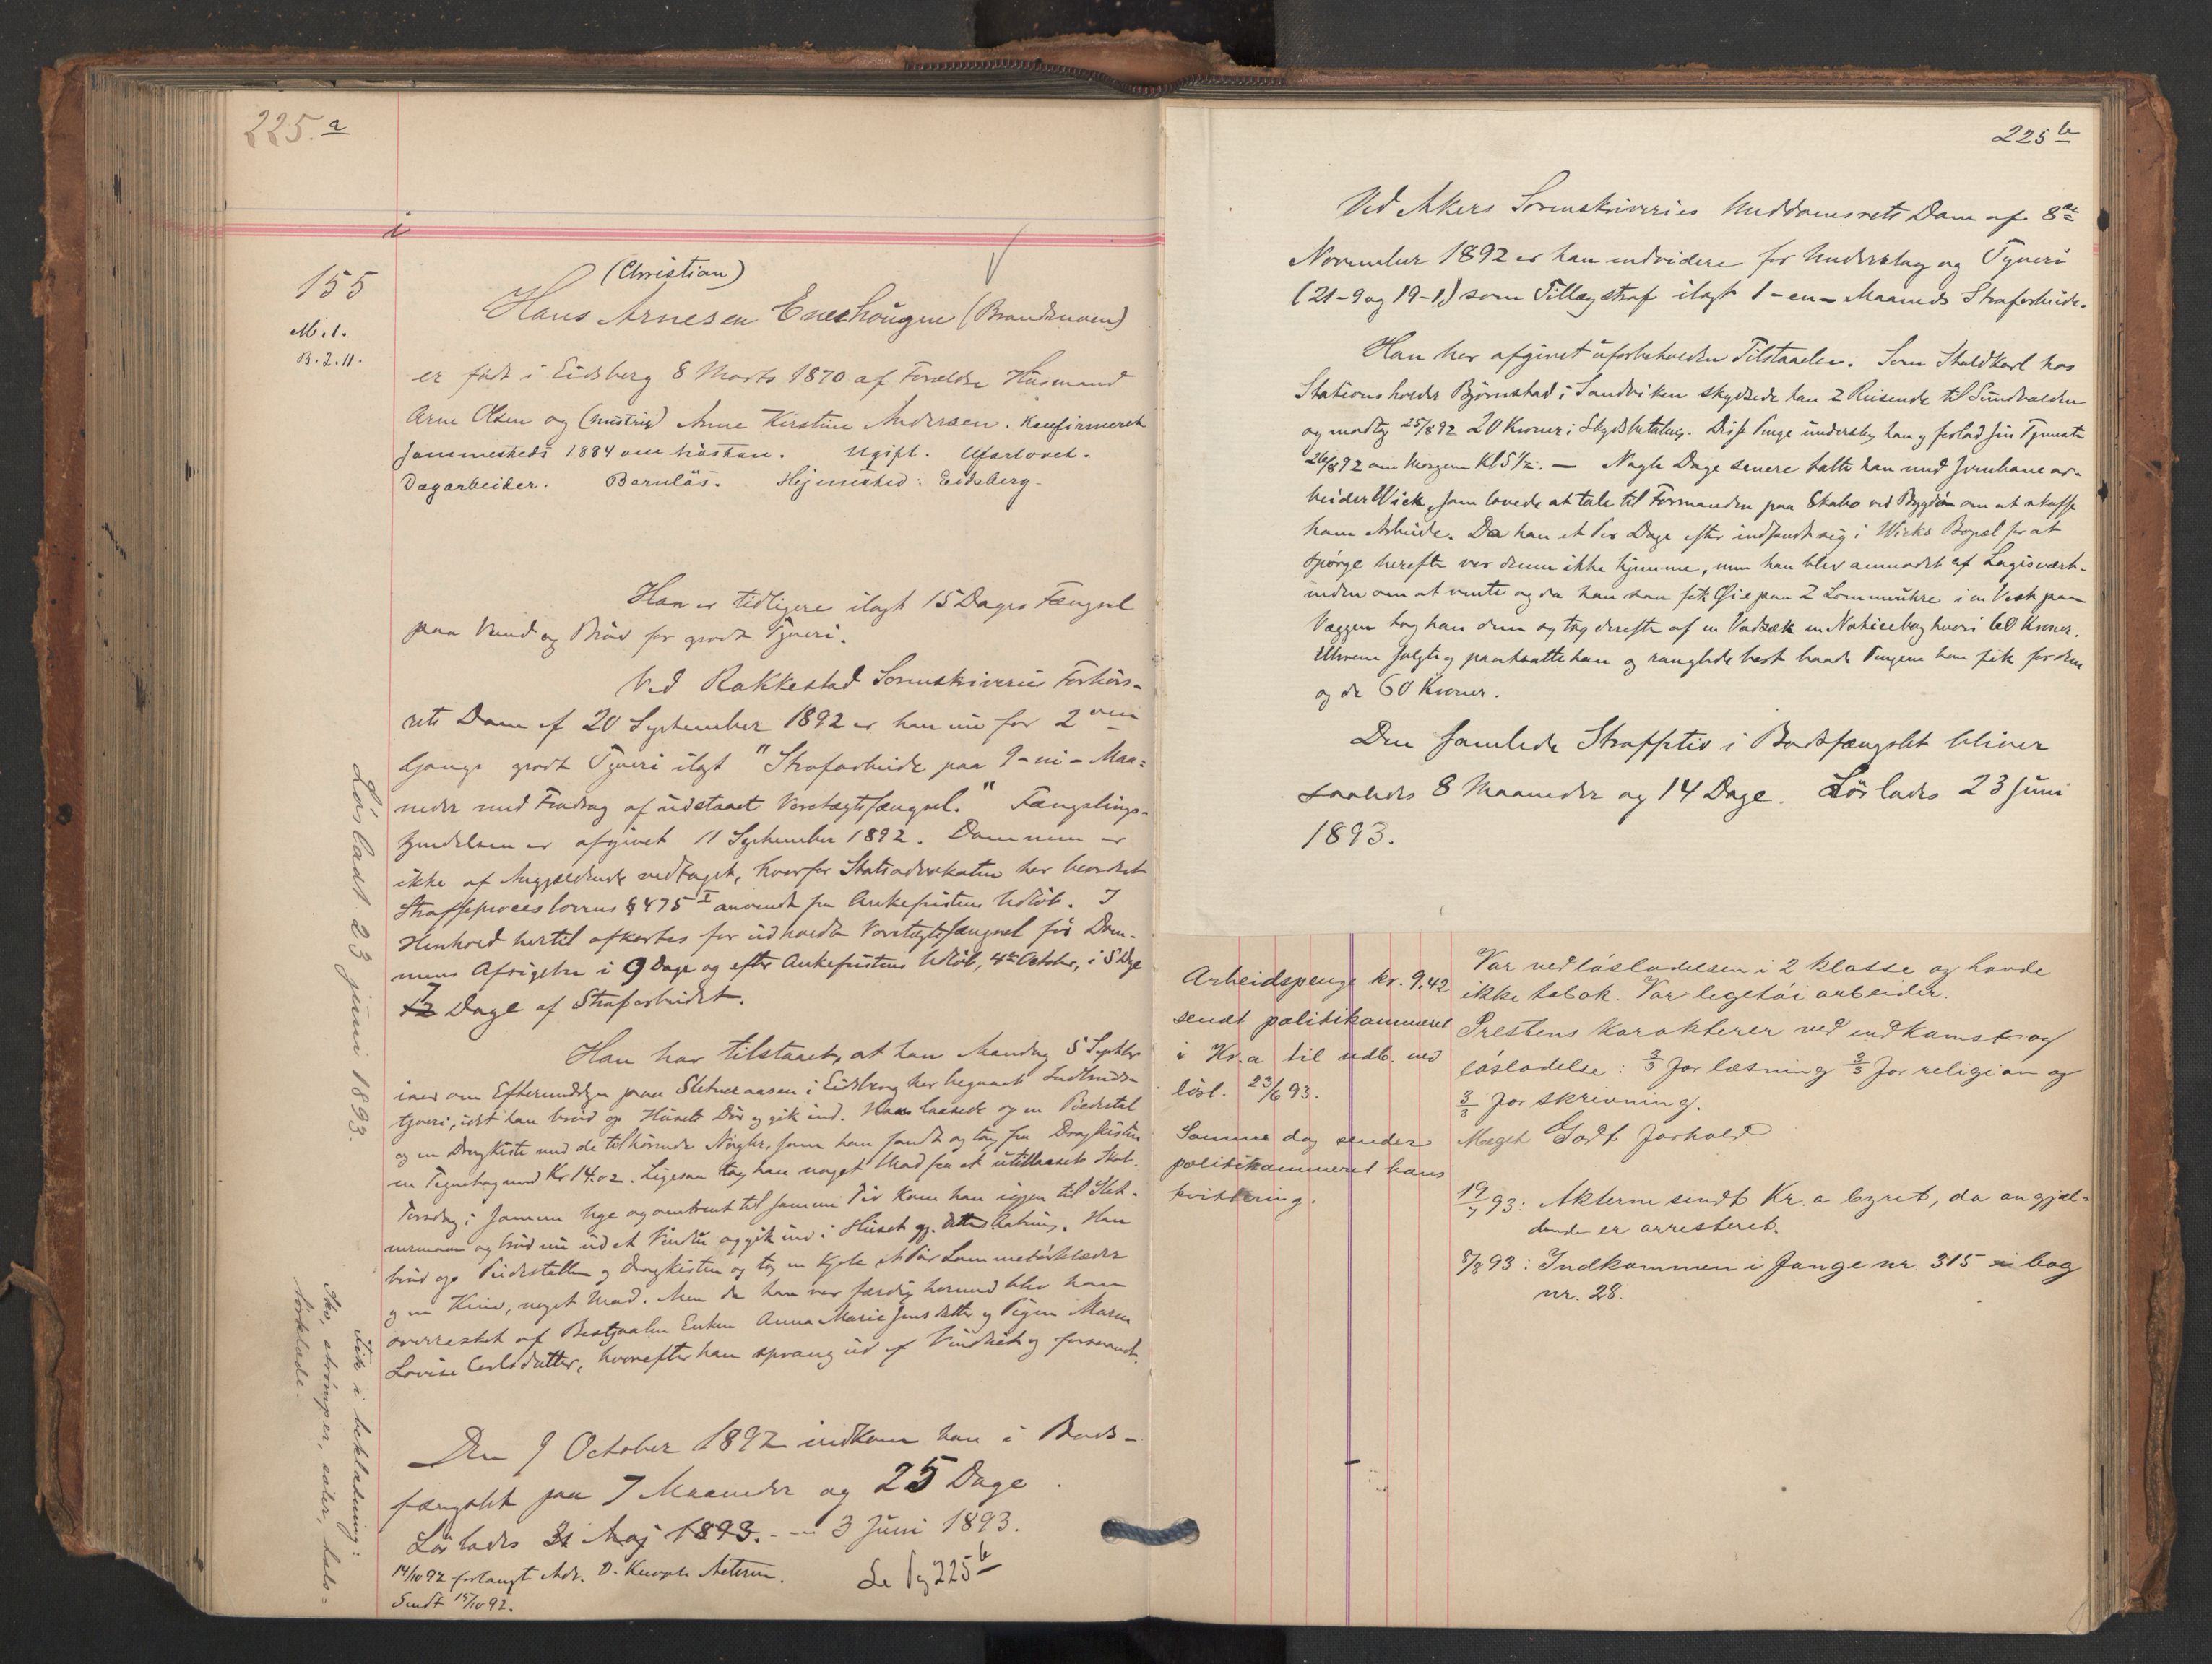 225.a
i
155
M.1.
B.2.11.
(Christian)
Hans Arnesen Enerhougen (Brandmoen)
er født i Eidsberg 8 Marts 1870 af Forældre Husmand
Arne Olsen og (hustru) Anne Kirstine Andersen. Konfirmeret
sammesteds 1884 om høsten. Ugift. Uforlovet.
Dagarbeider. Barnløs. Hjemsted: Eidsberg.
Han er tidligere ilagt 15 Dages Fængsel
paa Vand og Brød for grovt Tyveri.
Ved Rakkestad Sorenskriveries Forhørs-
rets Dom af 20 September 1892 er han nu for 2den
Gangs grovt Tyveri ilagt "Strafarbeide paa 9-ni-Maa-
neder med Fradrag af udstaaet Varetægtsfængsel." Fængslings-
kjendelsen er afgivet 11 September 1892. Dommen er
ikke af Angjældende vedtaget, hvorfor Statsadvokaten har beordret
Straffeproceslovens § 475 I anvendt fra Ankefristens Udløb. I
Henhold hertil afkortes for udholdt Varetægtsfængsel før Dom-
mens Afsigelse i 9 Dage og efter Ankefristens Udløb, 4de October, i 5 Dage
7
12 Dage af Strafarbeidet.
Han har tilstaaet, at han Mandag 5 Septbr
iaar om Eftermiddagen paa Sletneraasen i Eidsberg har begaaet Indbruds-
tyveri, idet han brød op Husets Dør og gik ind. Han laasede op en Piedestal
og en Dragkiste med de tilhørende Nøgler, som han fandt og tog fra Dragkisten
en Tegnebog med Kr 14.02. Ligesaa tog han noget Mad fra et utillaaset Skab.
Torsdag i samme Uge og omtrent til samme Tid kom han igjen til Slet-
neraasen og brød nu ud et Vindu og gik ind i Huset gj. dettes Aabning. Han
brød op Piedestallen og Dragkisten og tog en Kjole, et Par Lommetørklæder
og en Kniv, noget Mad. Men da han var færdig hermed blev han
overrasket af Bestjaalne Enken Anna Marie Jensdatter og Pigen Maren
Lovise Carlsdatter, hvorefter han sprang ud af Vinduet og forsvandt.
Den 9 October 1892 indkom han i Bods-
fængslet paa 7 Maaneder og 25 Dage.
Løslades 31 Maj 1893. - 3 Juni 1893.
14/10 92 forlangt Adv. D. Akterne.
Sendt 15/10 92.
Se Pg 225 b
Løsladt 23 juni 1893.
Fik i beklædning:
Sko, strömper, sæler, hals-
törklæde.
225 b
Ved Akers Sorenskriveries Meddomsrets Dom af 8de
November 1892 er han endvidere for Underslag og Tyveri
(21-9 og 19-1) som Tillægsstraf ilagt 1-en-Maaneds Strafarbeide.
Han har afgivet uforbeholden Tilstaaelse. Som Skaldkarl hos
Stationsholder Bjørnstad i Sandviken skydsede han 2 Reisende til Sundvolden
og modtog 25/8 92 20 Kroner i Skydsbetaling. Disse Penge underslog han og forlod sin Tjeneste
26/8 92 om Morgenen Kl 5½. — Nogle Dage senere traf han med Jernbanear-
beider Wick, som lovede at tale til Formanden paa Skabo ved Bygdø om at skaffe
ham Arbeide. Da han et Par Dage efter indfandt sig i Wicks Bopæl for at
spørge herefter var denne ikke hjemme, men han blev anmodet af Logisvært-
inden om at vente og da han saa fik Øie paa 2 Lommeuhre i en Vest paa
Væggen tog han dem og tog derefter af en Vadsæk en Noticebog hvori 60 Kroner.
Uhrene solgte og pantsatte han og ranglede bort baade Pengene han fik for dem
og de 60 Kroner.
Den samlede Straffetid i Bodsfængslet bliver
saaledes 8 Maaneder og 14 Dage. Løslades 23 Juni
1893.
Arbeidspenge kr. 9.42
sendt politikammeret
i Kr.a til udb. ved
løsl. 23/6 93.
Samme dag sender
politikammeret hans
kvittering.
Var ved løsladelsen i 2 klasse og havde
ikke tabak. Var legetøi arbeider.
Prestens Karakterer ved indkomst og
løsladelse: 3/3 for læsning 3/3 for religion og
3/3 for skrivning.
Meget Godt forhold.
19/7 93: Akterne sendt Kr.a byret, da angjæl-
dende er arresteret.
8/8 93: Indkommen i fange nr. 315 i bog
nr. 28.